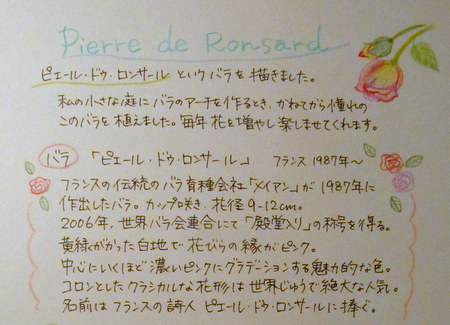 Pierre de Ronsard
ピエール・ドゥ・ロンサール というバラを描きました。
私の小さな庭にバラのアーチを作るとき、かねてから憧れの
このバラを植えました。毎年花を増やし楽しませてくれます。
バラ 「ピエール・ドゥ・ロンサール」 フランス 1987年〜
フランスの伝統のバラ育種会社「メイアン」が1987年に
作出したバラ。カップ咲き、花径9-12cm。
2006年、世界バラ会連合にて「殿堂入り」の称号を得る。
黄緑がかった白地で花びらの縁がピンク。
中心にいくほど濃いピンクにグラデーションする魅力的な色。
コロンとしたクラシカルな花形は世界じゅうで絶大な人気。
名前はフランスの詩人ピエール・ドゥ・ロンサールに捧ぐ。